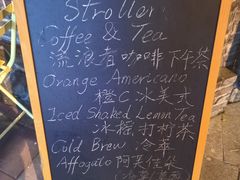 Stroller
Coffee & Tea
流浪者咖啡下午茶
Orange Americano
橙C冰美式
Iced Shaked Lemon Tea
冰摇打柠茶
Cold Brew 冷萃
Affogato 阿芙佳朵